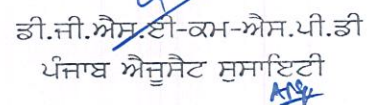 ਡੀ.ਜੀ.ਐਸ.ਈ-ਕਮ-ਐਸ.ਪੀ.ਡੀ
ਪੰਜਾਬ ਐਜੂਸੈਟ ਸੁਸਾਇਟੀ